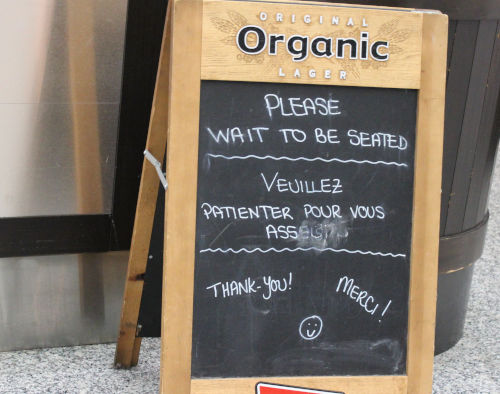 ORIGINAL
Organic
LAGER
PLEASE
WAIT TO BE SEATED
VEUILLEZ
PATIENTER POUR VOUS
THANK-YOU!
MERCI!